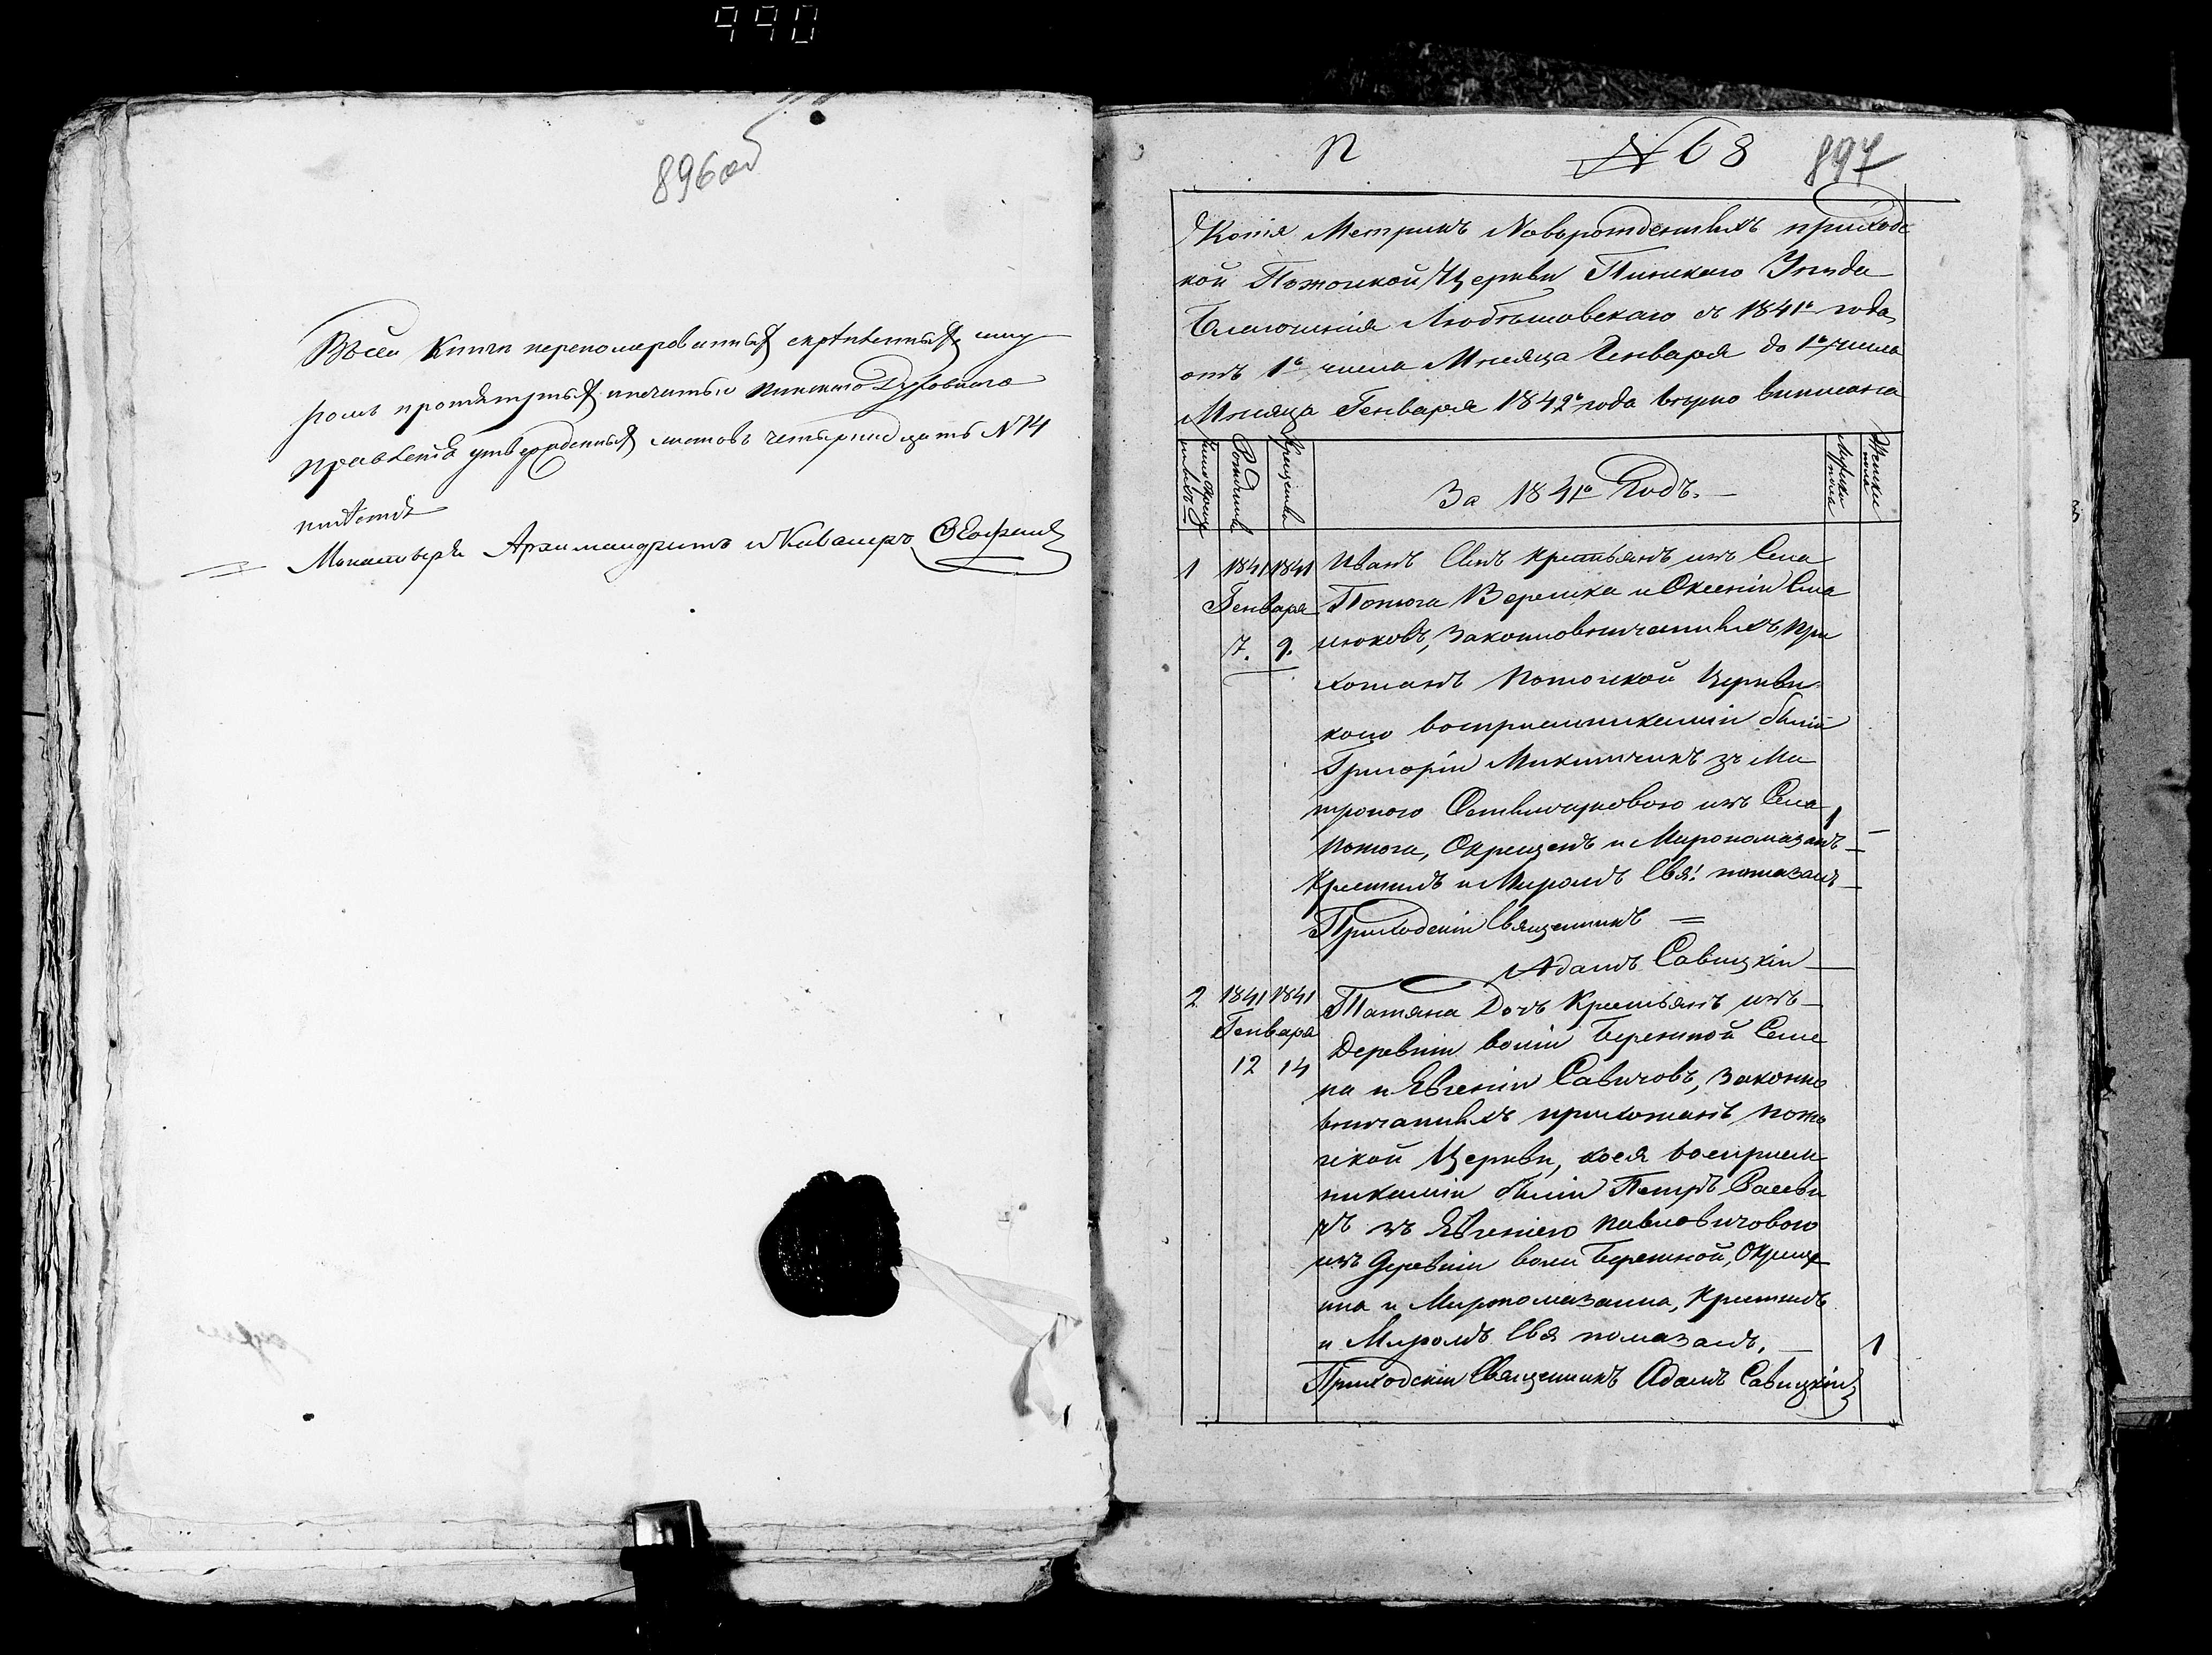 990
896об
Въ сей Книги перенумерованныхъ скрепленныхъ шну
ромъ протянутыхъ и печатью Пинского Духовнаго
Правленія утвержденныхъ листовъ четырнадцать N 14
Монастыря Архимандритъ и Кавалеръ
N 68 897
Копія Метрикъ Новорожденныхъ приходс
кой Пожогской Церкви Пинскаго Уѣзда
Благочинія Любѣшовскаго съ 1841го года
отъ 1го числа Мѣсяца Генваря до 1го числа
Мѣсяца Генваря 1842го года вѣрно выписана
Рождены
Крещены
За 1841й Годъ.
Мужска пола
Женска пола
1 1841 1841 Иванъ Сынъ Крестьянъ изъ Села
Генваря Пожога и Оксеніи
7. 9. законновѣнчанныхъ, при
хожанъ Пожогской Церкви
коего воспріемниками были
Григорій Микитчикъ зъ Ма
троною изъ Села
Пожога, Окрещенъ и Миропомазанъ 1
Крестилъ и Миромъ Свя: помазалъ
Приходскій Священникъ
Адамъ Савицкій
2 1841 1841 Татяна Дочь Крестьянъ изъ
Генваря Деревни Волѣ Бережной Семе
12 14 на и Евгеніи Савичовъ, законно
вѣнчанныхъ прихожанъ Пожо
гской Церкви, коея воспріем
никами были Петръ
чъ зъ Евгеніею Павловичовою
изъ Деревни Волѣ Бережной, Окреще
нна и Миропомазанна, Крестилъ
и Миромъ Свя помазалъ. 1
Приходскій Священникъ Адамъ Савицкій